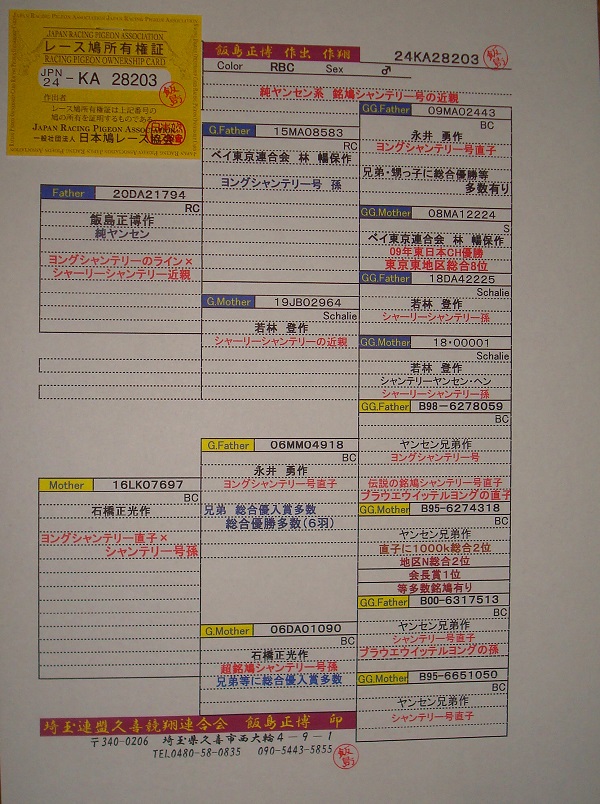 JAPAN RACING PIGEON ASSOCIATION
レース鳩所有権証
RACING PIGEON OWNERSHIP CARD
JPN
24 - KA 28203
作出者
レース鳩所有権証は上記番号の
鳩の所有を証明するものである
JAPAN RACING PIGEON ASSOCIATION
一般社団法人 日本鳩レース協会
飯島正博 作出 作翔 24KA28203
Color RBC Sex ♂
純ヤンセン系 銘鳩シャンテリー号の近親
Father 20DA21794
RC
飯島正博作
純ヤンセン
ヨングシャンテリーのライン×
シャーリーシャンテリー近親
Mother 16LK07697
BC
石橋正光作
ヨングシャンテリー直子×
シャンテリー号孫
G.Father 15MA08583
RC
ベイ東京連合会 林 幡保作
ヨングシャンテリー号 孫
G.Mother 19JB02964
Schalie
若林 登作
シャーリーシャンテリーの近親
G.Father 06MM04918
BC
永井 勇作
ヨングシャンテリー号直子
兄弟 総合優入賞多数
総合優勝多数(6羽)
G.Mother 06DA01090
BC
石橋正光作
超銘鳩シャンテリー号孫
兄弟等に総合優入賞多数
GG.Father 09MA02443
BC
永井 勇作
ヨングシャンテリー号直子
兄弟・甥っ子に総合優勝等
多数有り
GG.Mother 08MA12224
S
ベイ東京連合会 林 幡保作
09年東日本CH優勝
東京東地区総合8位
GG.Father 18DA42225
Schalie
若林 登作
シャーリーシャンテリー孫
GG.Mother 18・00001
Schalie
若林 登作
シャンテリーヤンセン・ヘン
シャーリーシャンテリー孫
GG.Father B98-6278059
BC
ヤンセン兄弟作
ヨングシャンテリー号
伝説の銘鳩シャンテリー号直子
ブラウエウイッテルヨングの直子
GG.Mother B95-6274318
BC
ヤンセン兄弟作
直子に1000k総合2位
地区N総合2位
会長賞1位
等多数銘鳩有り
GG.Father B00-6317513
BC
ヤンセン兄弟作
シャンテリー号直子
ブラウエウイッテルヨングの孫
GG.Mother B95-6651050
BC
ヤンセン兄弟作
シャンテリー号直子
埼玉連盟久喜競翔連合会 飯島正博 印
〒340-0206 埼玉県久喜市西大輪4-9-1
TEL0480-58-0835 090-5443-5855